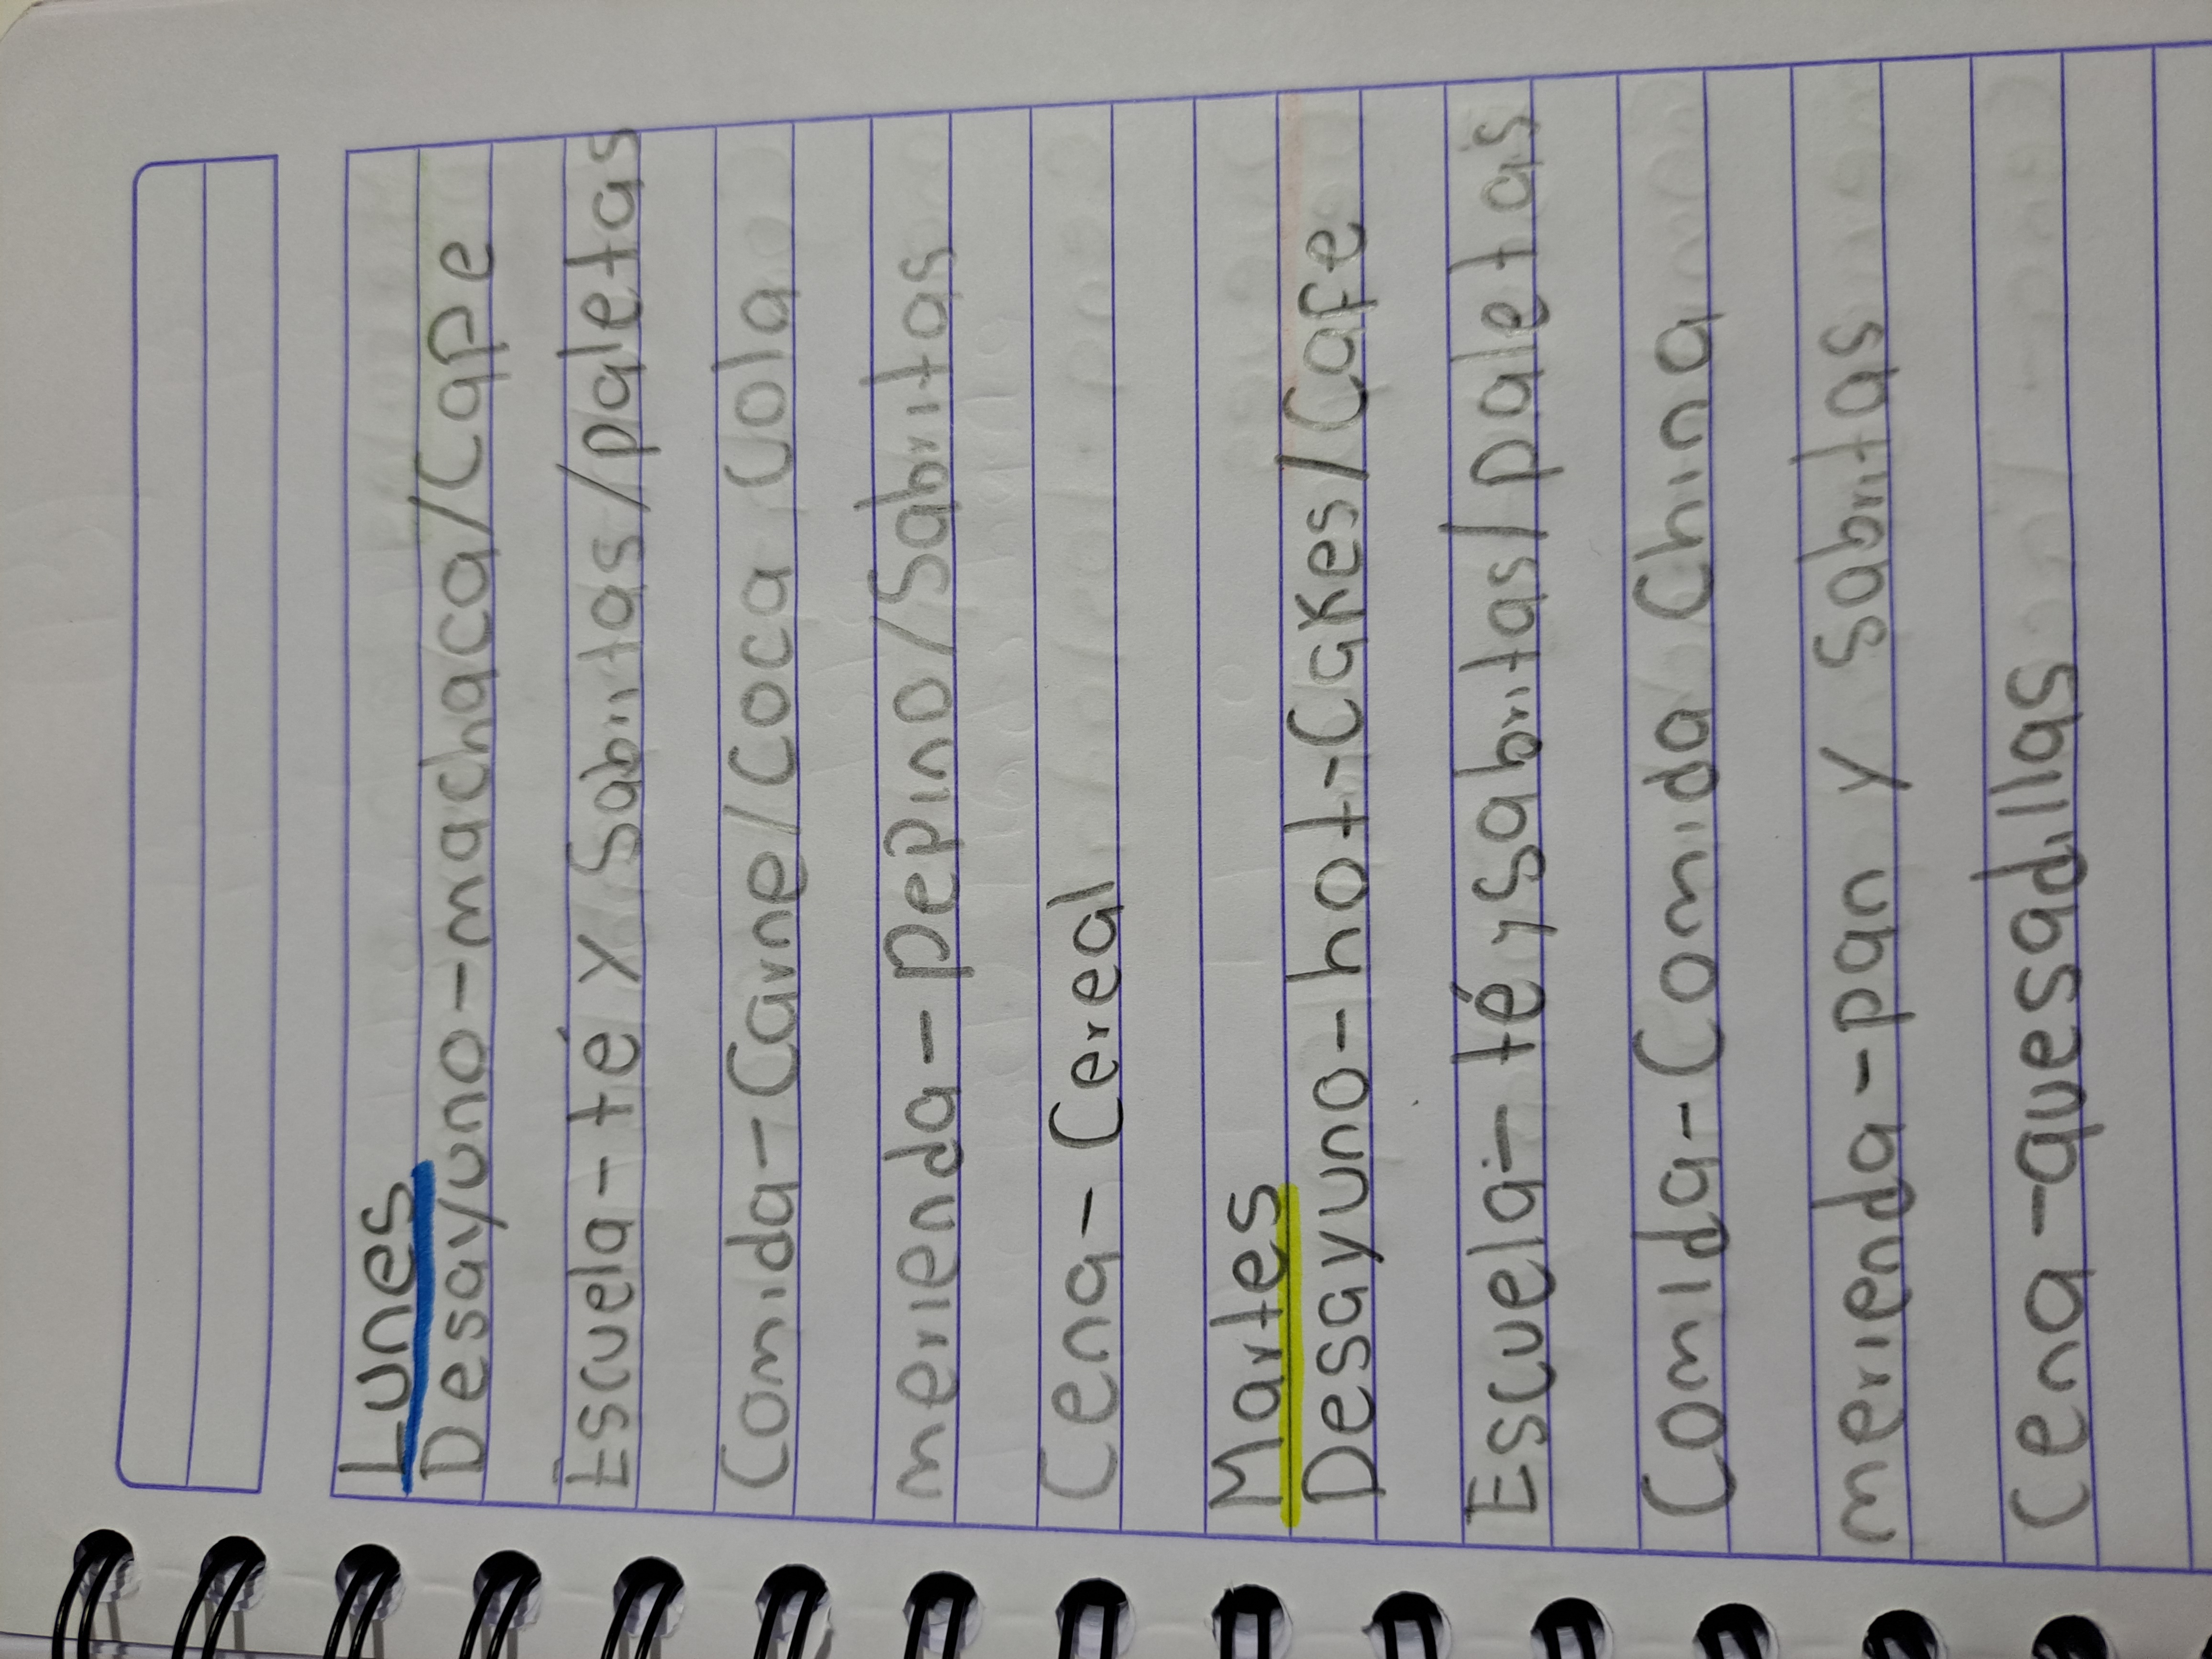 Lunes
Desayuno-machaca/Cape
Escuela-té y/Sabritas/paletas
Comida-Carne/Coca Cola
merienda-pepino/Sabritas
Cena-Cereal
Martes
Desayuno-hot-Cakes/Cafe
Escuela-té y sabritas/paletas
Comida-Comida China
merienda-pan y sabritas
Cena-quesadillas